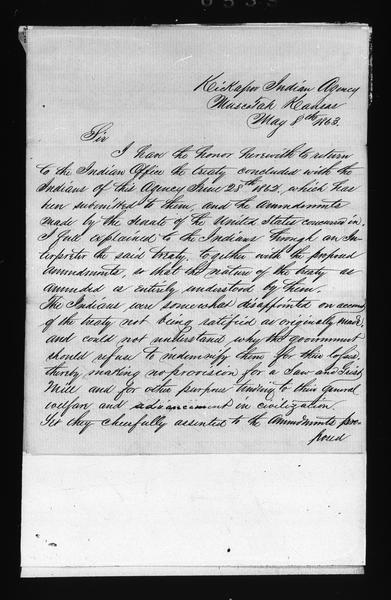 Kickapoo Indian Agency
Muscotah Kansas
May 8th 1863.
Sir
I have the honor herewith to return
to the Indian Office the treaty concluded with the
Indians of this Agency June 28th 1862, which has
been submitted to them, and the amendments
made by the Senate of the United States concurred in.
I full explained to the Indians through an In-
terpreter the said treaty, together with the proposed
amendments, so that the nature of the treaty as
amended is entirely understood by them.
The Indians were somewhat disappointed on account
of the treaty not being ratified as originally made,
and could not understand why the government
should refuse to indemnify them for their losses,
thereby making no provision for a Saw and Grist
Mill and for other purpose tending to their general
welfare and advancement in civilization.
Yet they cheerfully assented to the amendments pro-
posed